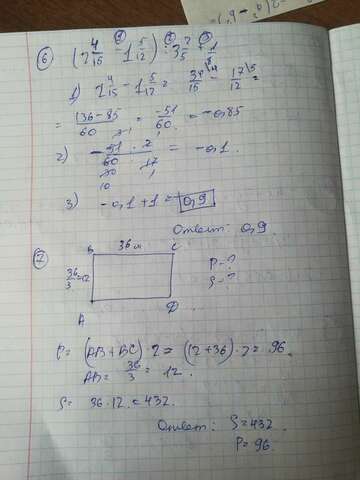 6) (2 4/15 - 1 5/12) : 3 2/5 + 1
1) 2 4/15 - 1 5/12 = 34/15 - 17/12 =
= 136-85/60 = -51/60 = -0,85
2) - 51/60 · 2/17 = -0,1.
3) -0,1+1 = 0,9
Ответ: 0,9
7
B 36 м C
36/3=12
P-?
S-?
A D
P= (AB+BC)·2= (12+36)·2=96.
AB= 36/3 = 12.
S= 36·12=432.
Ответ: S=432
P=96.